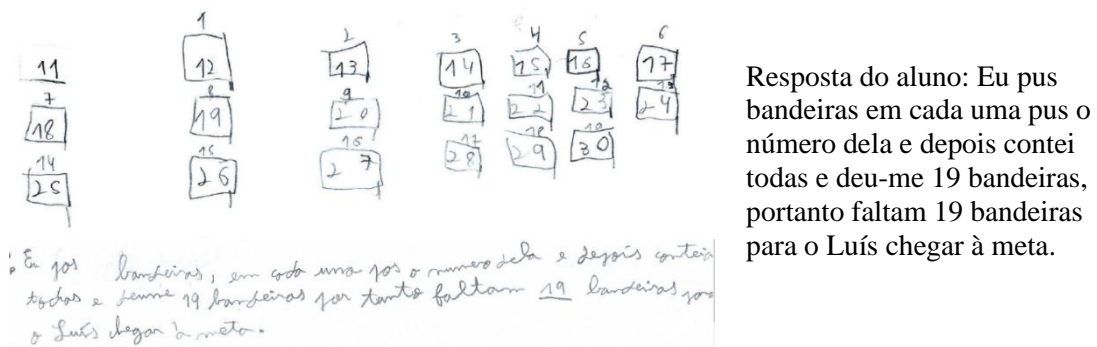 1 2 3 4 5 6
11 12 13 14 15 16 17
7 8 9 10 11 12 13
18 19 20 21 22 23 24
14 15 16 17 18 19
25 26 27 28 29 30
Eu pos bandeiras, em cada uma pos o numero dela e depois contei
todas e deume 19 bandeiras por tanto faltam 19 bandeiras para
o Luís chegar à meta.
Resposta do aluno: Eu pus
bandeiras em cada uma pus o
número dela e depois contei
todas e deu-me 19 bandeiras,
portanto faltam 19 bandeiras
para o Luís chegar à meta.